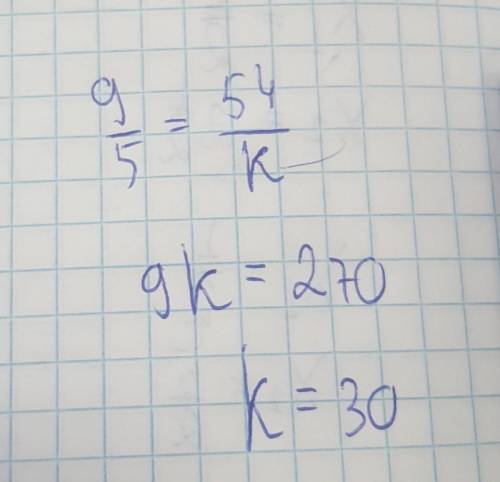 9/5 = 54/k
9k = 270
k = 30